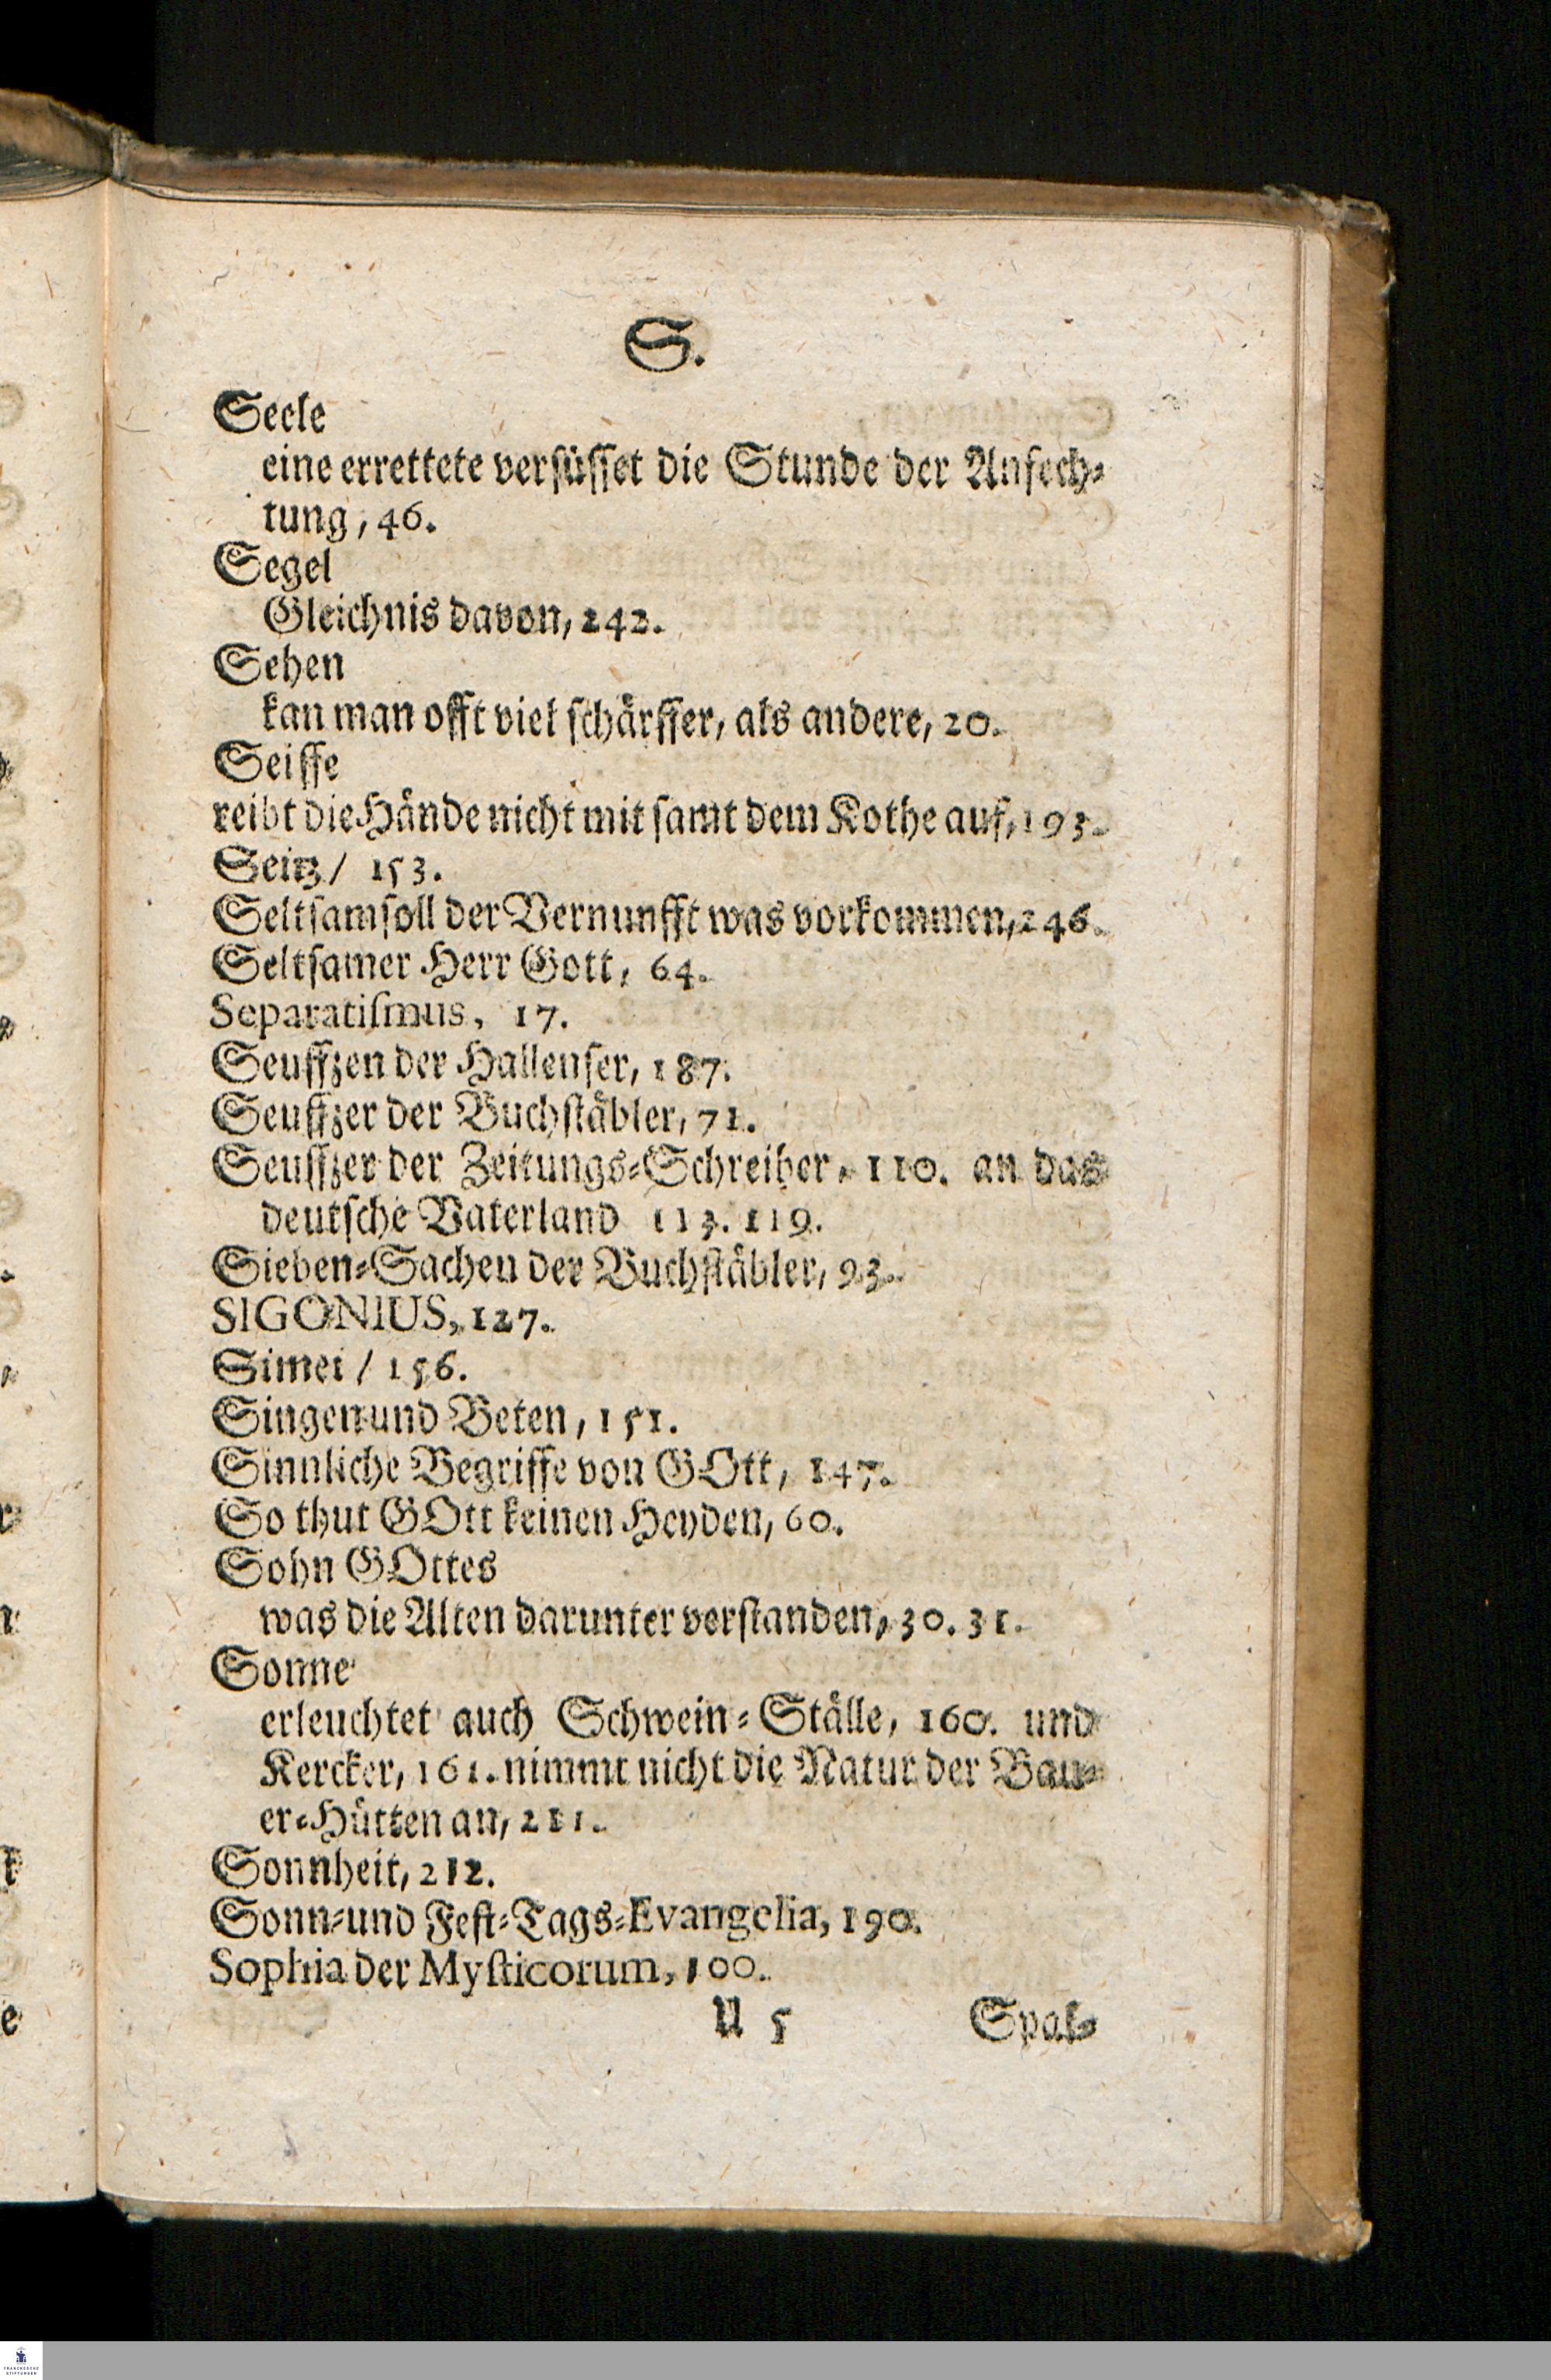 S.
Seele
eine errettete versüsset die Stunde der Anfech-
tung, 46.
Segel
Gleichnis davon, 242.
Sehen
kan man offt viel schärffer, als andere, 20.
Seiffe
reibt die Hände nicht mit samt dem Kothe auf, 193.
Seitz / 153.
Seltsam soll der Vernunfft was vorkommen, 246.
Seltsamer Herr Gott, 64.
Separatismus, 17.
Seuffzen der Hallenser, 187.
Seuffzer der Buchstäbler, 71.
Seuffzer der Zeitungs-Schreiber, 110. an das
deutsche Vaterland 113. 119.
Sieben-Sachen der Buchstäbler, 93.
SIGONIUS, 127.
Simei / 156.
Singen und Beten, 151.
Sinnliche Begriffe von GOtt, 147.
So thut GOtt keinen Heyden, 60.
Sohn GOttes
was die Alten darunter verstanden, 30. 31.
Sonne
erleuchtet auch Schwein-Ställe, 160. und
Kercker, 161. nimmt nicht die Natur der Bau-
er-Hütten an, 211.
Sonnheit, 212.
Sonn- und Fest-Tags-Evangelia, 190.
Sophia der Mysticorum, 100.
U 5 Spal-
FRANCKESCHE
STIFTUNGEN